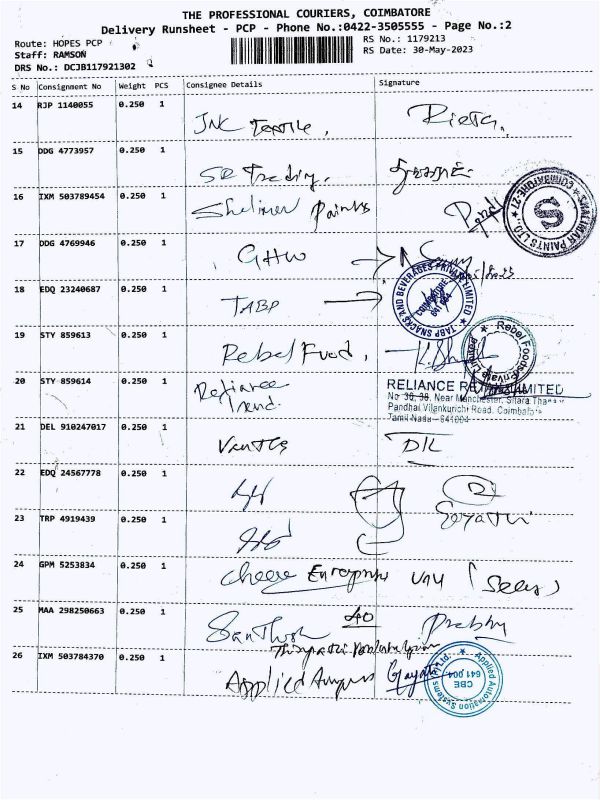 THE PROFESSIONAL COURIERS, COIMBATORE
Delivery Runsheet - PCP - Phone No.:0422-3505555 - Page No.:2
Route: HOPES PCP
Staff: RAMSON
DRS No.: DCJB117921302
RS No.: 1179213
RS Date: 30-May-2023
S No Consignment No Weight PCS Consignee Details Signature
14 RJP 1140055 0.250 1
JNK Textile,
15 DDG 4773957 0.250 1
SR Trading.
16 IXM 503789454 0.250 1
Shalimar Paints
SHALIMAR PAINTS LTD. COIMBATORE-27
S
17 DDG 4769946 0.250 1
GHW
18 EDQ 23240687 0.250 1
TABP
TABP SNACKS AND BEVERAGES PRIVATE LIMITED
COIMBATORE
641 004
19 STY 859613 0.250 1
Rebel Food,
Rebel Foods Private Limited
20 STY 859614 0.250 1
Reliance
Trend.
RELIANCE LIMITED
No 36, 38, Near Manchester, Sitara
Pandhai Vilankurichi Road, Coimbatore
Tamil Nadu - 641004
21 DEL 910247017 0.250 1
DK
22 EDQ 24567778 0.250 1
23 TRP 4919439 0.250 1
Gayathri
24 GPM 5253834 0.250 1
Cheese Enterprises
25 MAA 298250663 0.250 1
Santhosh
Prabhu
26 IXM 503784370 0.250 1
Applied
Gayathri
Applied Automation Systems P Ltd.
CBE
641 004